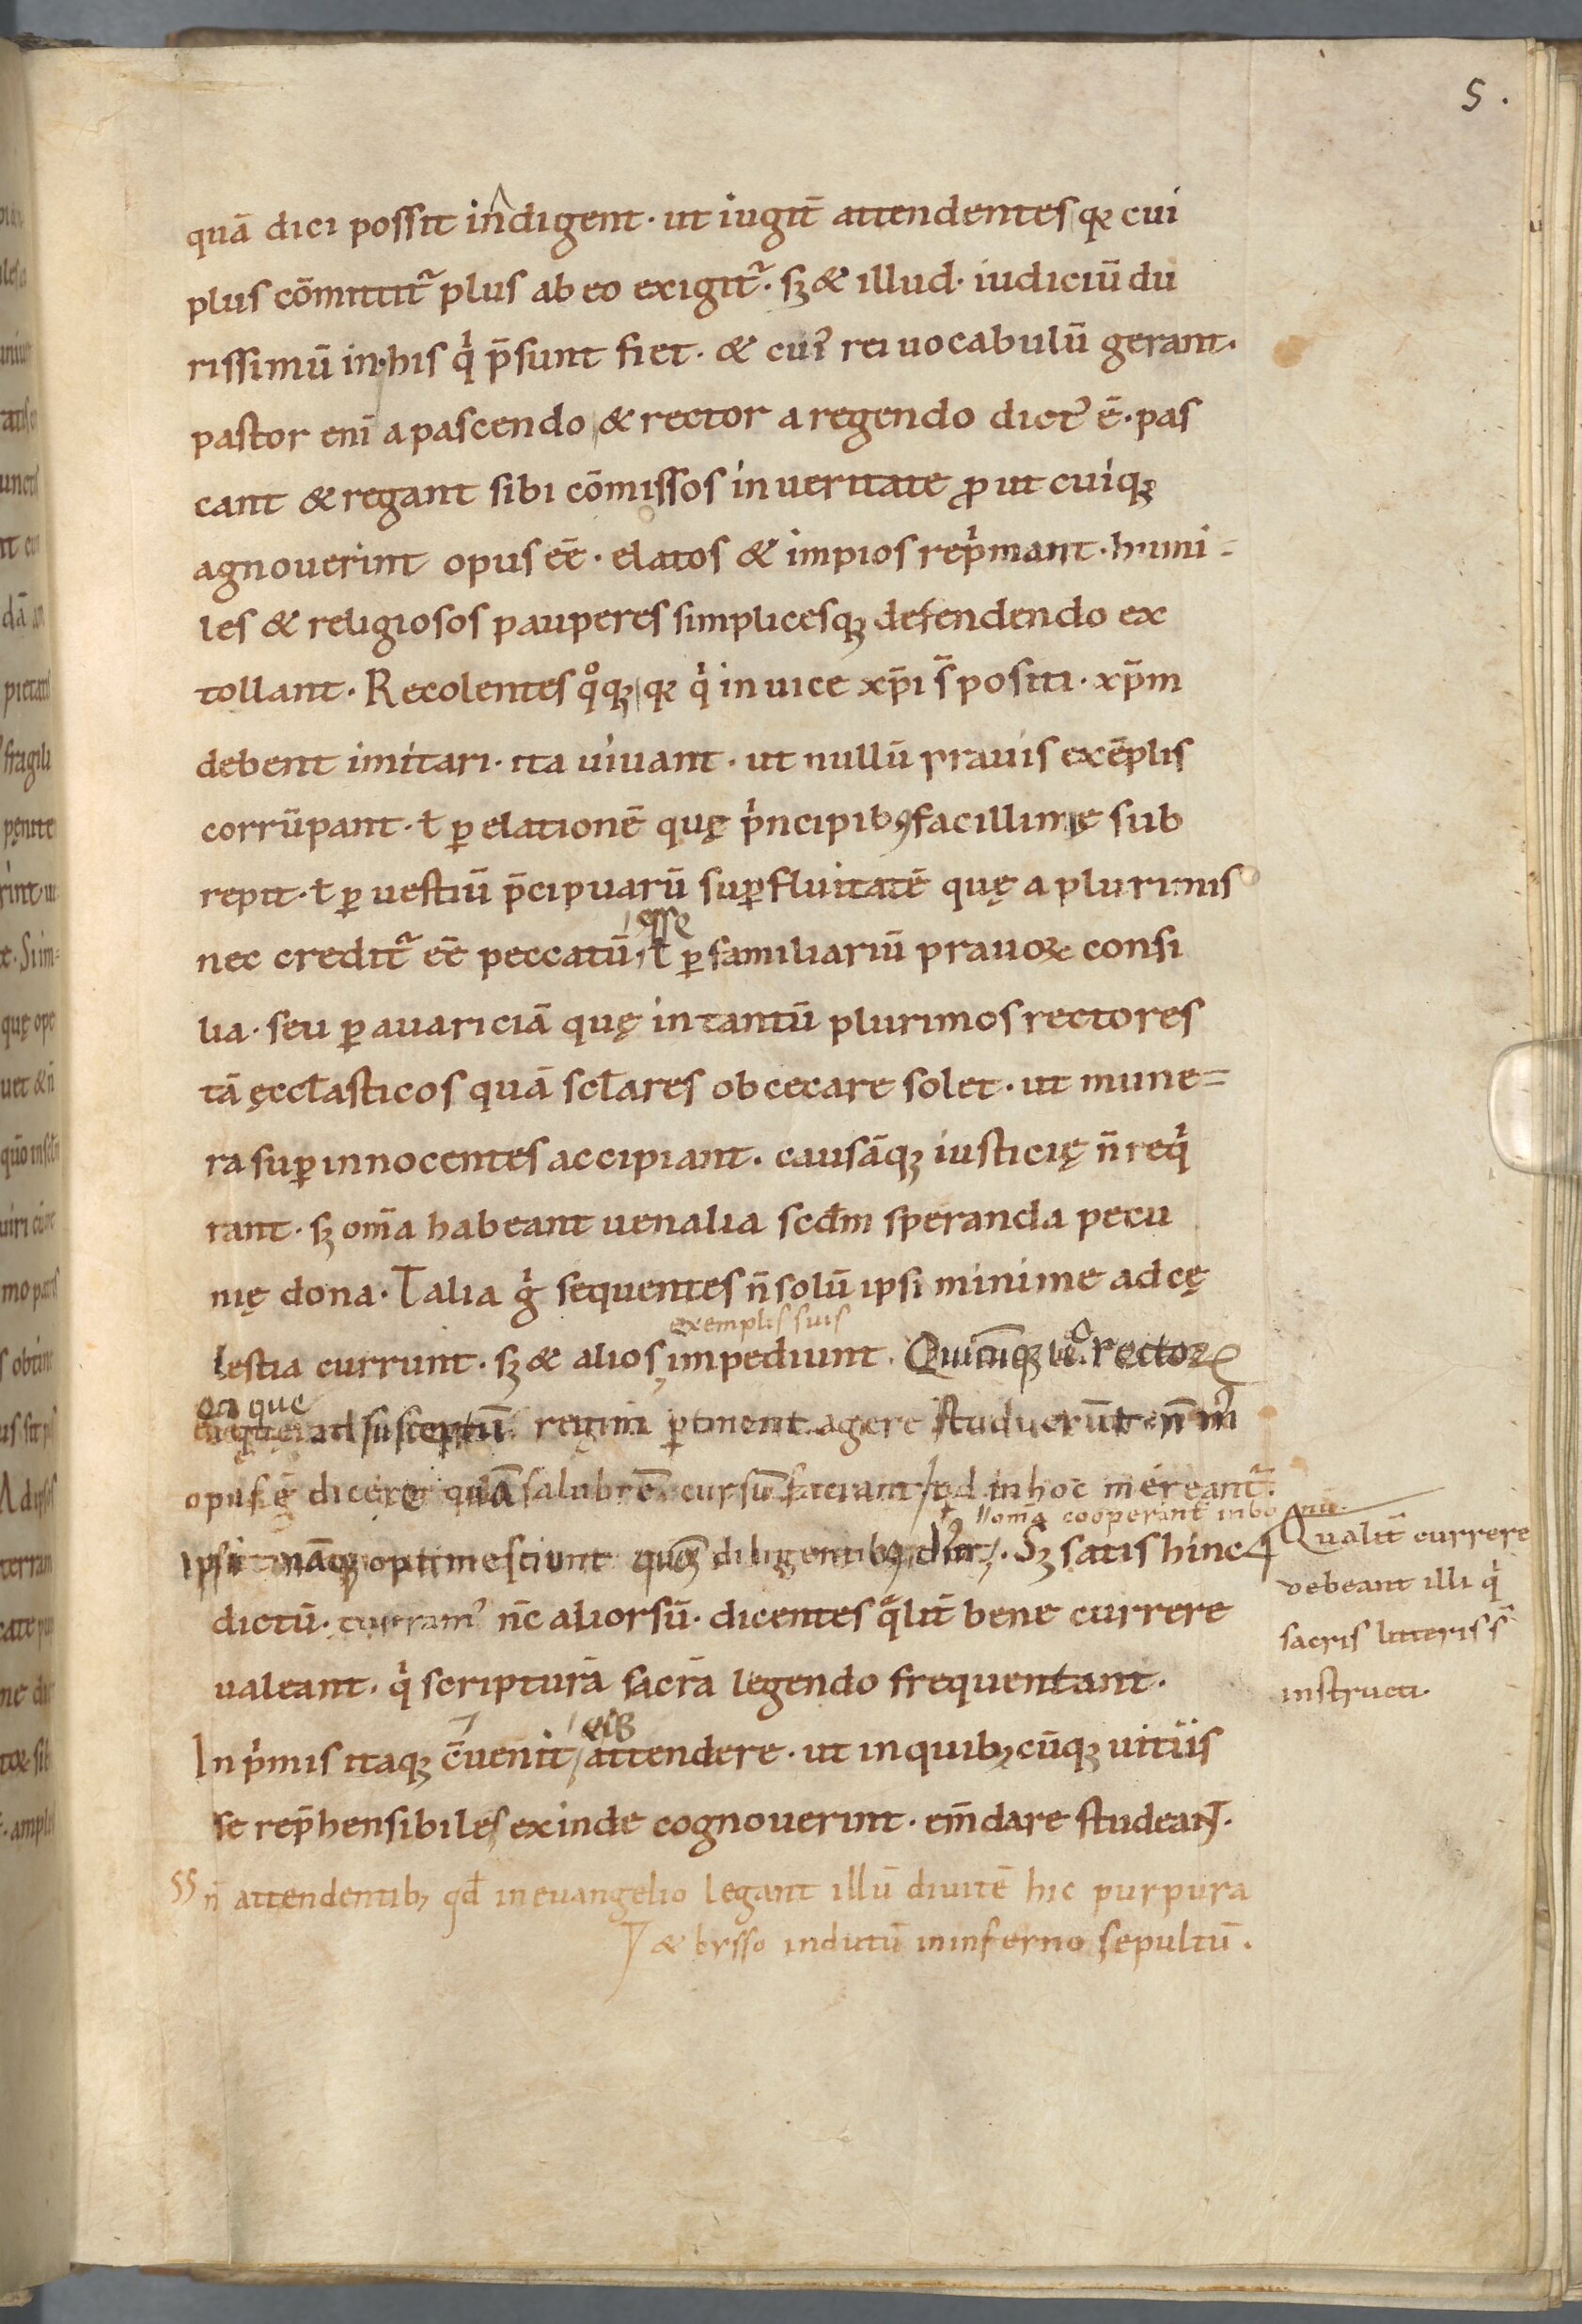 5.
quā dici possit indigent · ut iugit̄ attendentes qꝛ cui
plus cōmittit᷑ plus ab eo exigit᷑ · sꝫ & illud · iudiciū du
rissimū in his qⁱ p̄sunt fiet · & cuiꝰ rei uocabulū gerant ·
pastor eni̅ a pascendo & rector a regendo dictꝰ ē · pas
cant & regant sibi cōmissos in ueritate ꝓut cuiqꝫ
agnouerint opus eē · elatos & impios rep̍mant · humi=
les & religiosos pauperes simplicesqꝫ defendendo ex
tollant · Recolentes qͦqꝫ qꝛ qⁱ in uice xp̄i s̄ positi · xp̄m
debent imitari · ita uiuant · ut nullū prauis exēplis
corrūpant · ł ꝑ elationē quę pⁱncipibꝫ facillime sub
repit · ł ꝑ uestiū p̄cipuarū suꝑfluitatē quę a plurimis
esse
nec credit᷑ eē peccatū · ł ꝑ familiariū prauoꝝ consi
lia · seu ꝑ auariciā quę in tantū plurimos rectores
tā ęccłasticos quā scłares obcecare solet · ut mune=
ra suꝑ innocentes accipiant · causāqꝫ iusticię n̄ reqⁱ
rant · sꝫ om̄a habeant uenalia scd̄m speranda pecu
nię dona · Talia gⁱ sequentes n̄ solū ipsi minime ad cę
exemplis suis
lestia currunt · sꝫ & alios impediunt · Quicūqꝫ rectoꝝ
ea que
ad susceptū regim ꝑtinent agere studuerūt n̄ m̄
opus ę dicere quā salubrē cursū faciant qd in hoc mereant᷑
om̄a cooperant᷑ in bonū
ipsi namqꝫ optime sciunt quō diligentibꝫ dm̄ · Sꝫ satis hinc
dictū · curramꝰ n̄c aliorsū · dicentes qͣlit̄ bene currere
ualeant · qⁱ scripturā sacrā legendo frequentant ·
Qualit̄ currere
debeant illi qⁱ
sacris litteris s̄
instructi ·
eis
In pⁱmis itaqꝫ c̄uenit attendere · ut in quibꝫcūqꝫ uitiis
se rep̄hensibiles exinde cognouerint · em̄dare studeant ·
n̄ attendentibꝫ qd̄ in euangelio legant illū diuitē hic purpura
& bysso indutū in inferno sepultū ·